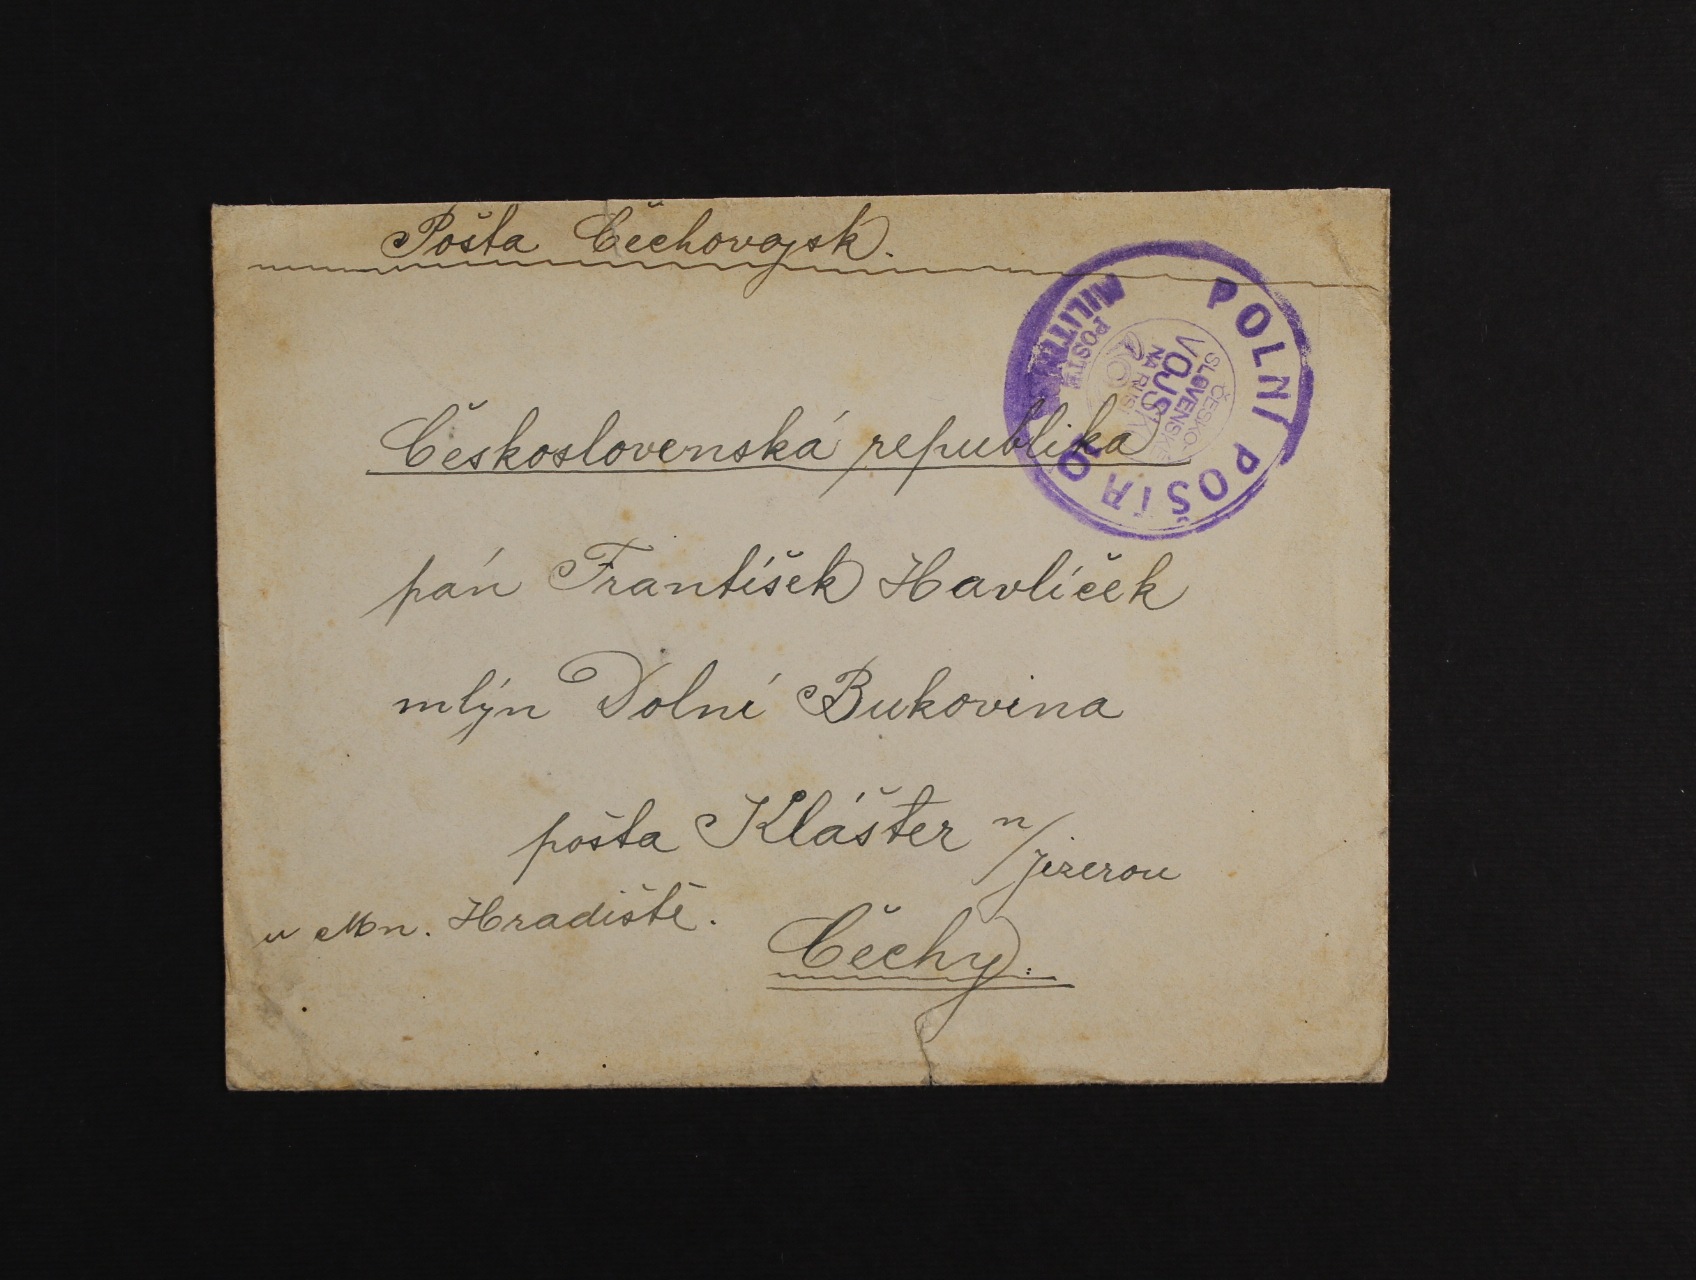 Pošta Čechovojsk.
POLNÍ POŠTA
POSTE
ČESKO-
SLOVENSKÉ
VOJSKO
NA RUSI
Československá republika
pán František Havlíček
mlýn Dolní Bukovina
pošta Klášter n/Jizerou
u Mn. Hradiště.
Čechy.